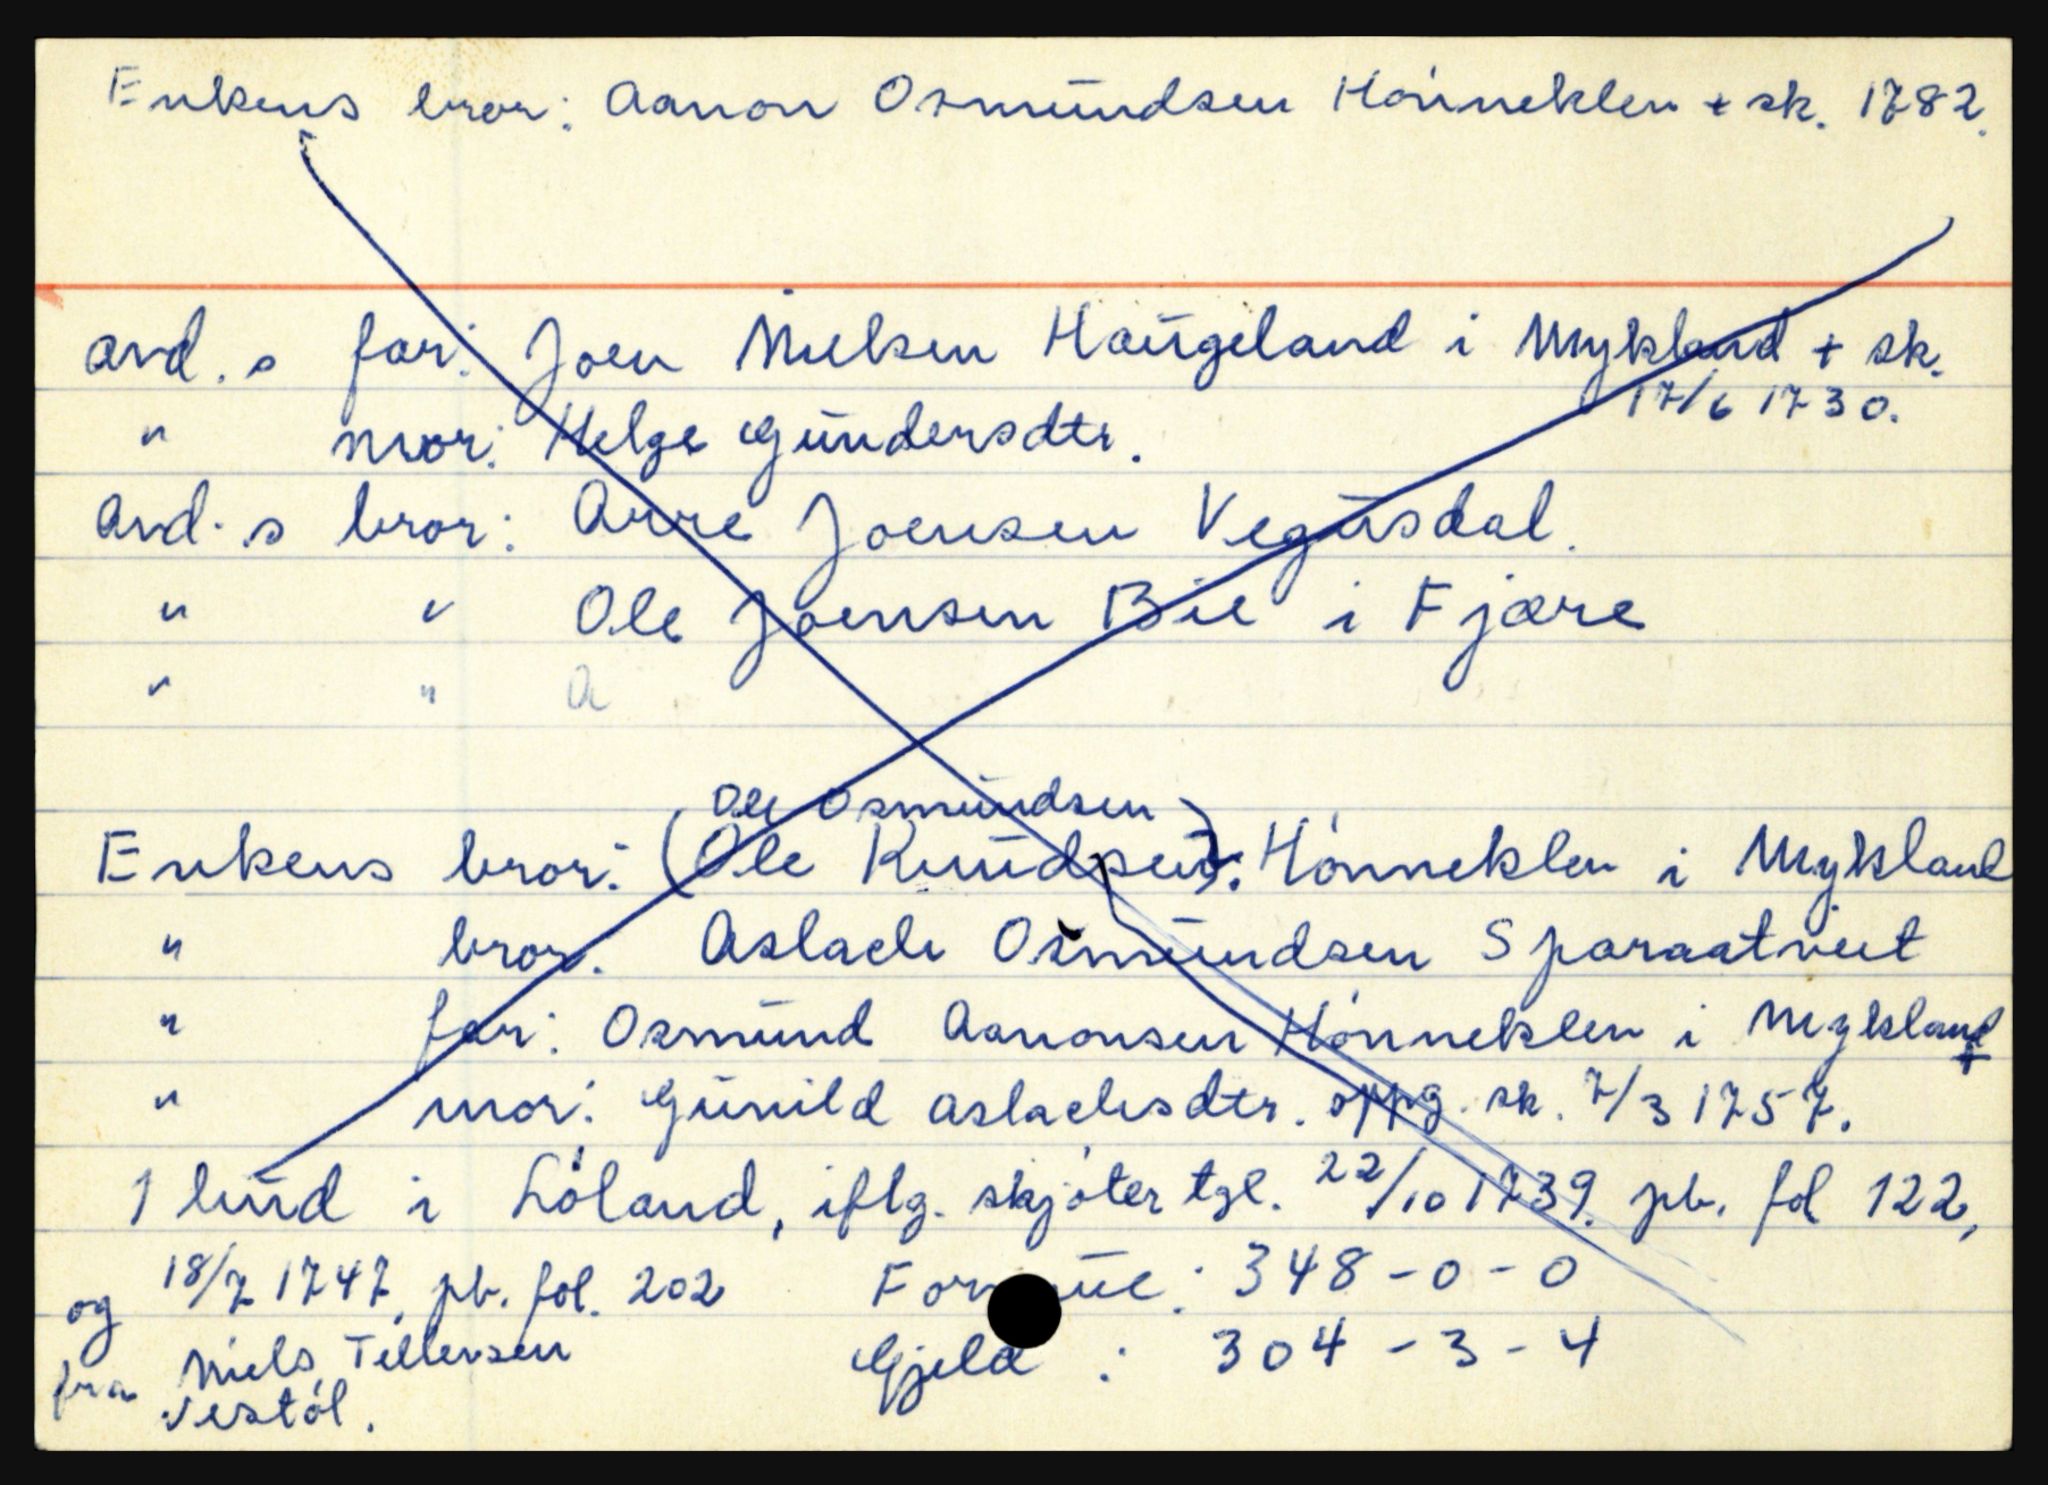 Enkens bror: Aanon Osmundsen Hónneklev + sk. 1782.
avd. s far: Joen Nielsen Haugeland i Mykland + sk.
17/6 1730.
" mor: Helge Gundersdtr.
Avd. s bror: Arre Joensen Vegusdal.
" " Ole Joensen Bie i Fjære
" " A
Ole Osmundsen
Enkens bror: (Ole Knudsen): Hónneklev i Mykland
" bror: Aslach Osmundsen Sparaatveit
" far: Osmund Aanonsen Hónneklev i Mykland +
" mor: Gunild Aslachsdtr. oppg. sk. 7/3 1757.
1 bud i Lóland, iflg. skjóter tgl. 22/10 1739. pb. fol 122,
og 18/7 1747, pb. fol. 202 Formue: 348-0-0
fra Niels Tellevsen Gjeld : 304-3-4
Vestól.